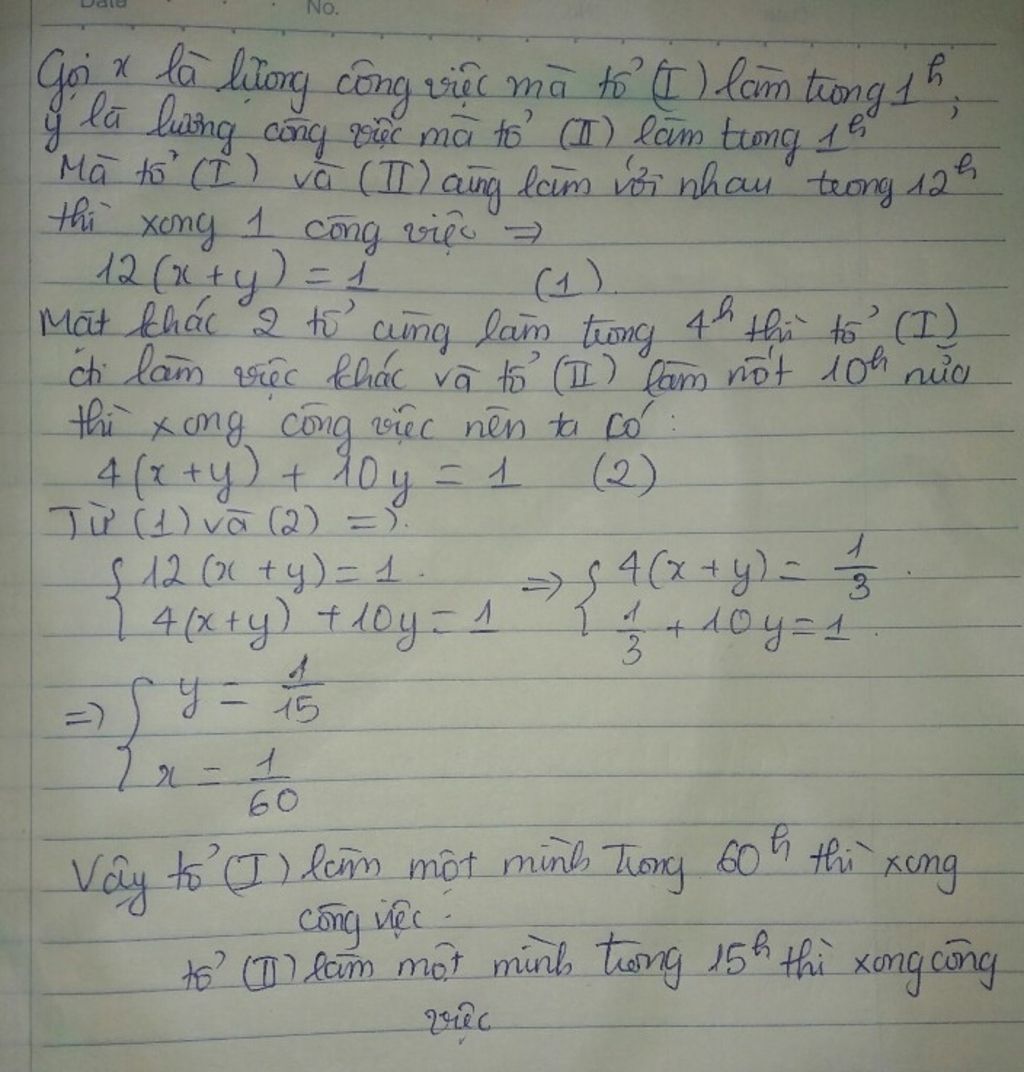 Date No.
Gọi x là lượng công việc mà tổ (I) làm trong 1h;
y là lượng công việc mà tổ (II) làm trong 1h
Mà tổ (I) và (II) cùng làm với nhau trong 12h
thì xong 1 công việc ⇒
12(x+y) = 1 (1).
Mặt khác 2 tổ cùng làm trong 4h thì tổ (I)
đi làm việc khác và tổ (II) làm nốt 10h nữa
thì xong công việc nên ta có:
4(x+y) + 10y = 1 (2)
Từ (1) và (2) =).
{ 12(x+y) = 1. ⇒ { 4(x+y) = 1/3.
4(x+y) + 10y = 1 1/3 + 10y = 1.
=) { y = 1/15
x = 1/60
Vậy tổ (I) làm một mình trong 60h thì xong
công việc.
tổ (II) làm một mình trong 15h thì xong công
việc